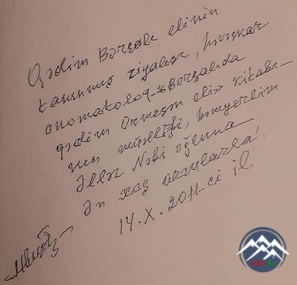 Qədim Borçalı elinin
tanınmış ziyalısı,
onomatoloq "Borçalıda
qədim Ermәşen elı" kitabı-
nın müəllifi, həmyerlim
Əllәz Nəbi oğluna
Ən xoş arzularla!
14.X.2011-ci il